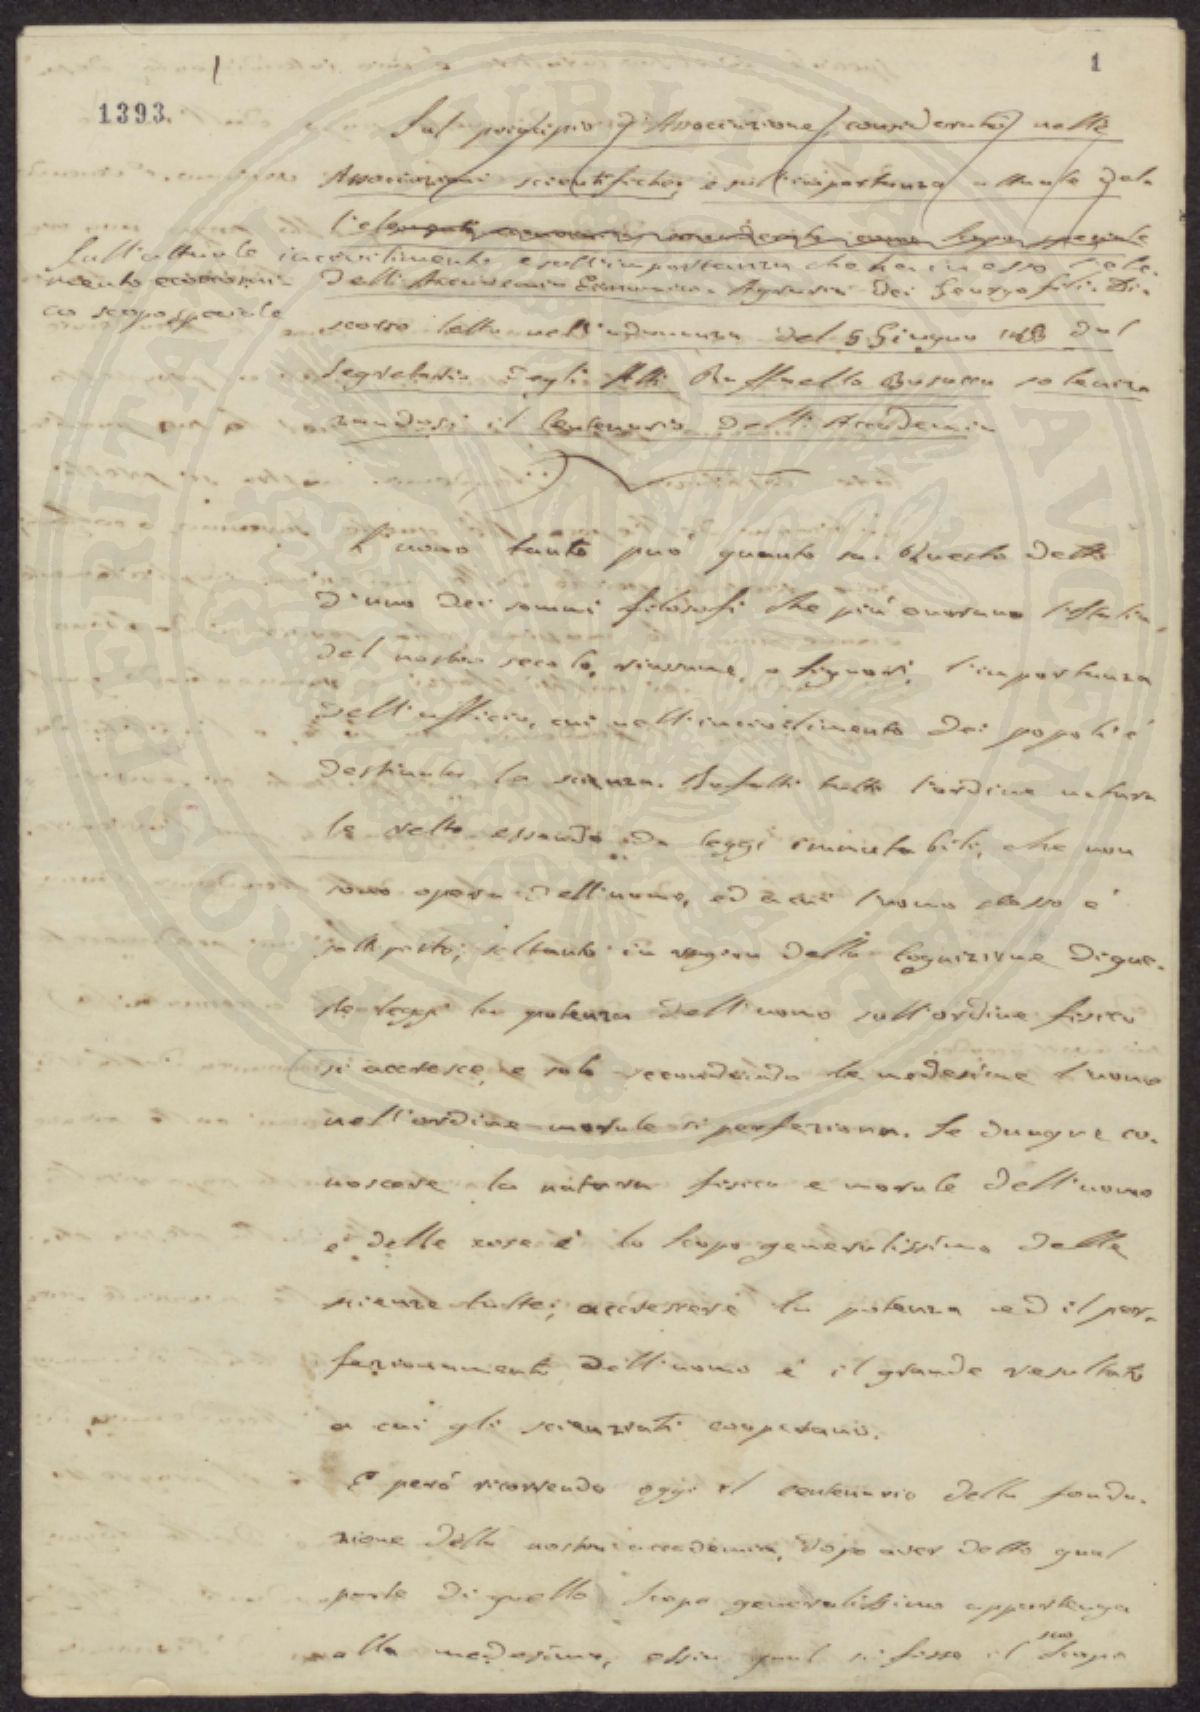 1
1393.
Sul principio d'Associazione, considerato nelle
Associazioni scientifiche, e sull'importanza attuale del-
l'elemento economico considerato come scopo speciale
Sull'attuale incivilimento e sull'importanza che ha in esso l'ele-
mento economi-
co scopo speciale
dell'Accademia Economico-Agraria dei Georgofili. Di-
scorso letto nell'adunanza del 5 Giugno 1853 dal
Segretario degli Atti Raffaello Busacca solenniz-
zandosi il Centenario dell'Accademia
L'uomo tanto può quanto sa. Questo detto
d'uno dei sommi filosofi che più onorano l'Italia
del nostro secolo, riassume, o Signori, l'importanza
dell'ufficio, cui nell'incivilimento dei popoli è
destinata la scienza. Infatti tutto l'ordine natura
le retto essendo da leggi immutabili, che non
sono opera dell'uomo, ed a cui l'uomo stesso è
sottoposto; soltanto in ragion della cognizione di que-
ste leggi la potenza dell'uomo sull'ordine fisico
si accresce, e solo secondando le medesime l'uomo
nell'ordine morale si perfeziona. Se dunque co-
noscere la natura fisica e morale dell'uomo
e delle cose è lo scopo generalissimo delle
scienze tutte; accrescere la potenza ed il per-
fezionamento dell'uomo è il grande resultato
a cui gli scienziati cooperano.
E però ricorrendo oggi il centenario della fonda-
zione della nostra accademia, dopo aver detto qual
parte di quello scopo generalissimo appartenga
alla medesima, ossia qual si fosse il suo scopo